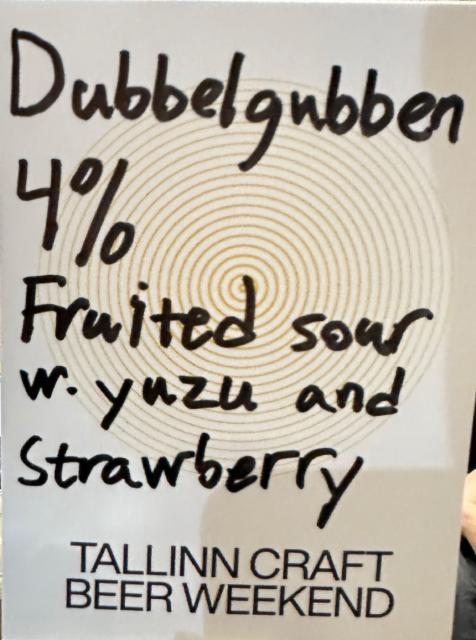 Dubbelgubben
4%
Fruited sour
w. yuzu and
Strawberry
TALLINN CRAFT
BEER WEEKEND